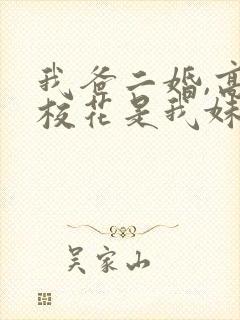 我爸二婚,高
校花是我妹
吴家山